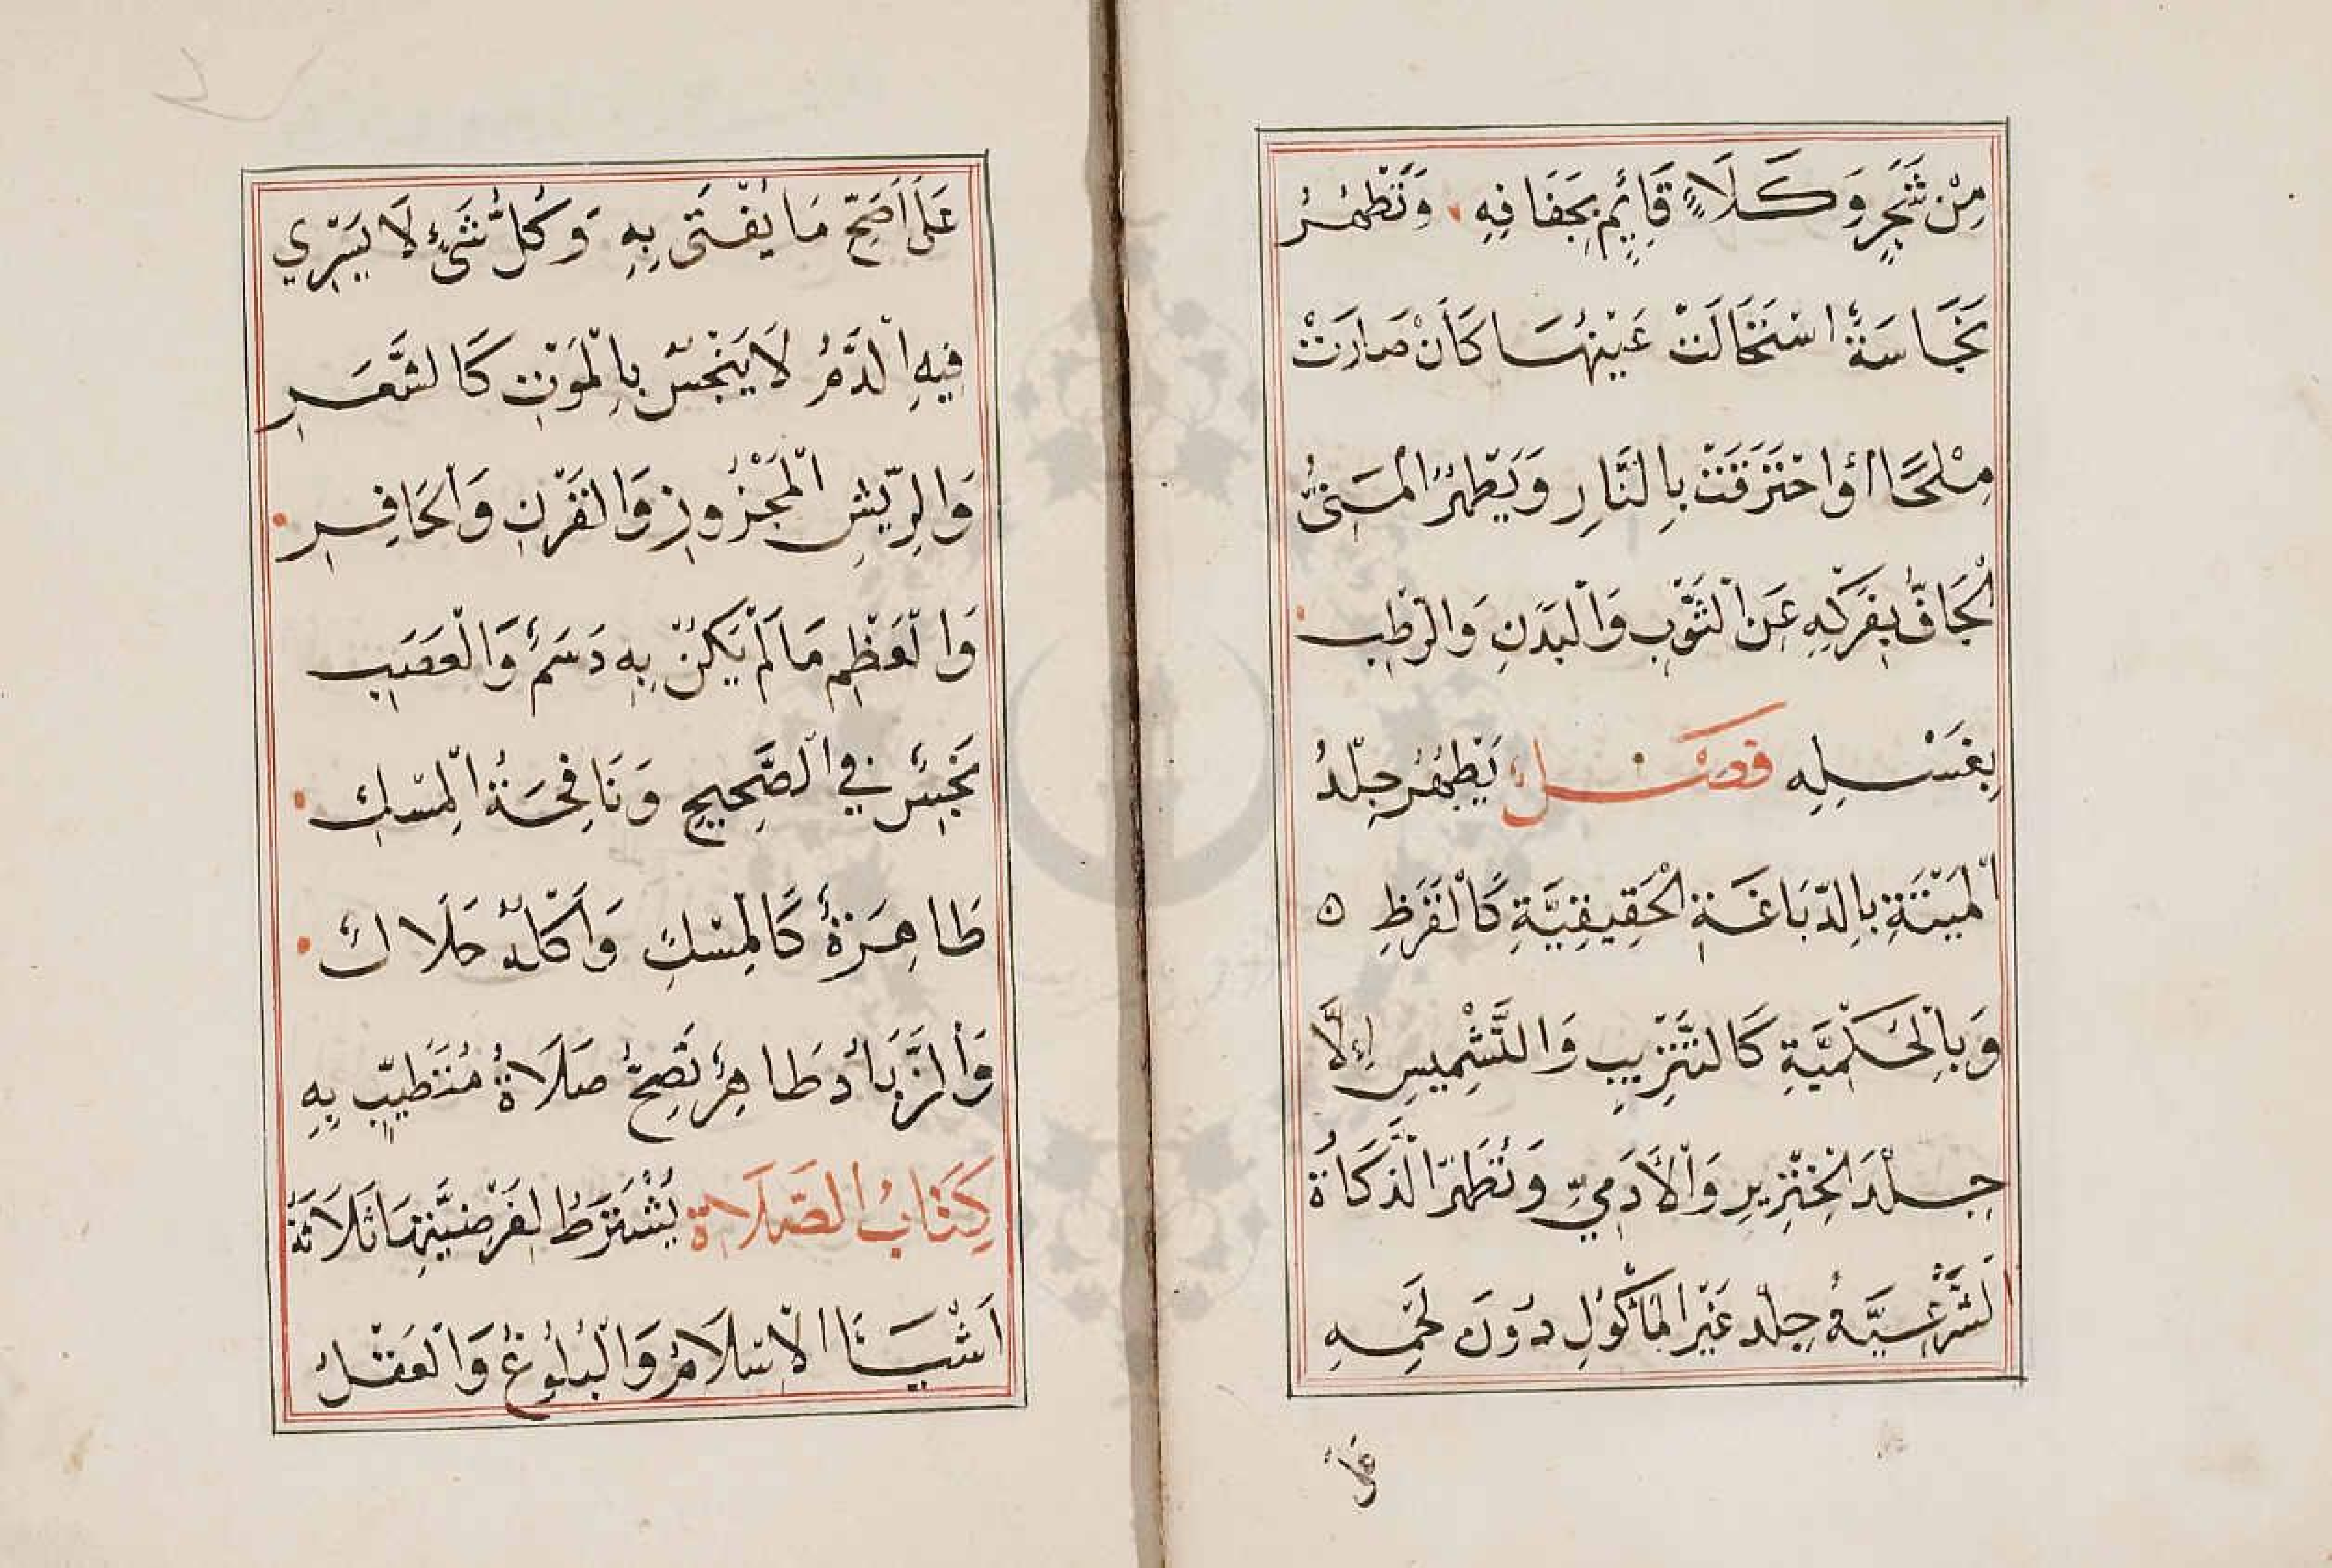 مِنْ شَجَرٍ وَكَلَاءٍ قَائِمٍ بِجَفَافِهِ وَتَطْهُرُ
نَجَاسَةٌ اسْتَحَالَتْ عَيْنُهَا كَأَنْ صَارَتْ
مِلْحًا أَوِ احْتَرَقَتْ بِالنَّارِ وَيَطْهُرُ الْمَنِيُّ
الْجَافُّ بِفَرْكِهِ عَنِ الثَّوْبِ وَالْبَدَنِ وَالرَّطْبِ
بِغَسْلِهِ فَصْلٌ يَطْهُرُ جِلْدُ
الْمَيْتَةِ بِالدِّبَاغَةِ الْحَقِيقِيَّةِ كَالْقَرَظِ ه
وَبِالْحُكْمِيَّةِ كَالتَّتْرِيبِ وَالتَّشْمِيسِ إِلَّا
جِلْدَ الْخِنْزِيرِ وَالْأَدَمِيِّ وَتُطَهِّرُ الذَّكَاةُ
لشَّرْعِيَّةُ جِلْدَ غَيْرِ الْمَأْكُولِ دُونَ لَحْمِهِ
عَلَى
عَلَى أَصَحِّ مَا يُفْتَى بِهِ وَكُلُّ شَيْءٍ لَا يَسْرِي
فِيهِ الدَّمُ لَا يَنْجُسُ بِالْمَوْتِ كَالشَّعَرِ
وَالرِّيشِ الْمَجْزُوزِ وَالْقَرْنِ وَالْحَافِرِ
وَالْعَظْمِ مَا لَمْ يَكُنْ بِهِ دَسَمٌ وَالْعَصَبِ
نَجِسٌ فِي الصَّحِيحِ وَنَافِحَةُ الْمِسْكِ
طَاهِرَةٌ كَالْمِسْكِ وَأَكْلُهُ حَلَالٌ
وَالزَّبَادُ طَاهِرٌ تَصِحُّ صَلَاةُ مُتَطَيِّبٍ بِهِ
كِتَابُ الصَّلَاةِ يُشْتَرَطُ لِفَرْضِيَّتِهَا ثَلَاثَةُ
أَشْيَاءَ الْإِسْلَامُ وَالْبُلُوغُ وَالْعَقْلُ